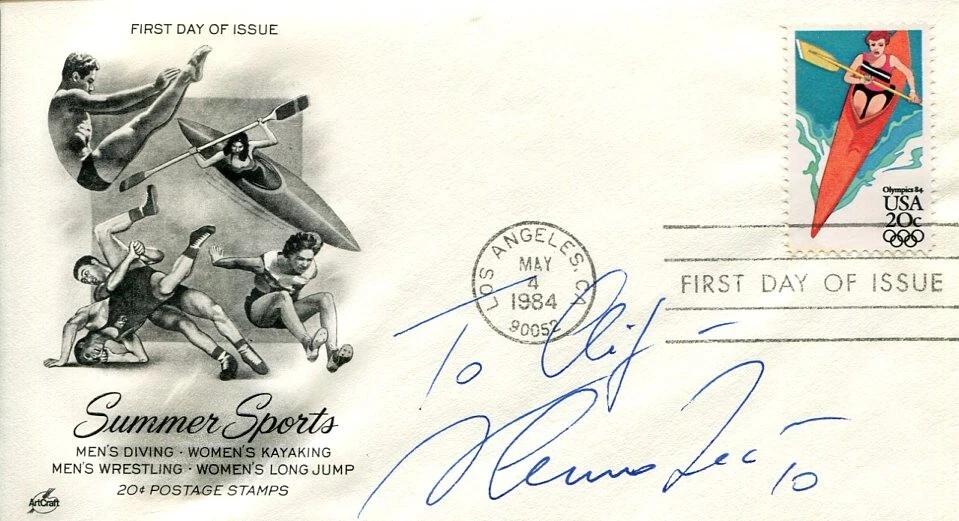 FIRST DAY OF ISSUE
Olympics 84
USA
20c
LOS ANGELES, CA
MAY
4
1984
90052
FIRST DAY OF ISSUE
To
Summer Sports
MEN'S DIVING · WOMEN'S KAYAKING
MEN'S WRESTLING · WOMEN'S LONG JUMP
20¢ POSTAGE STAMPS
ArtCraft
10